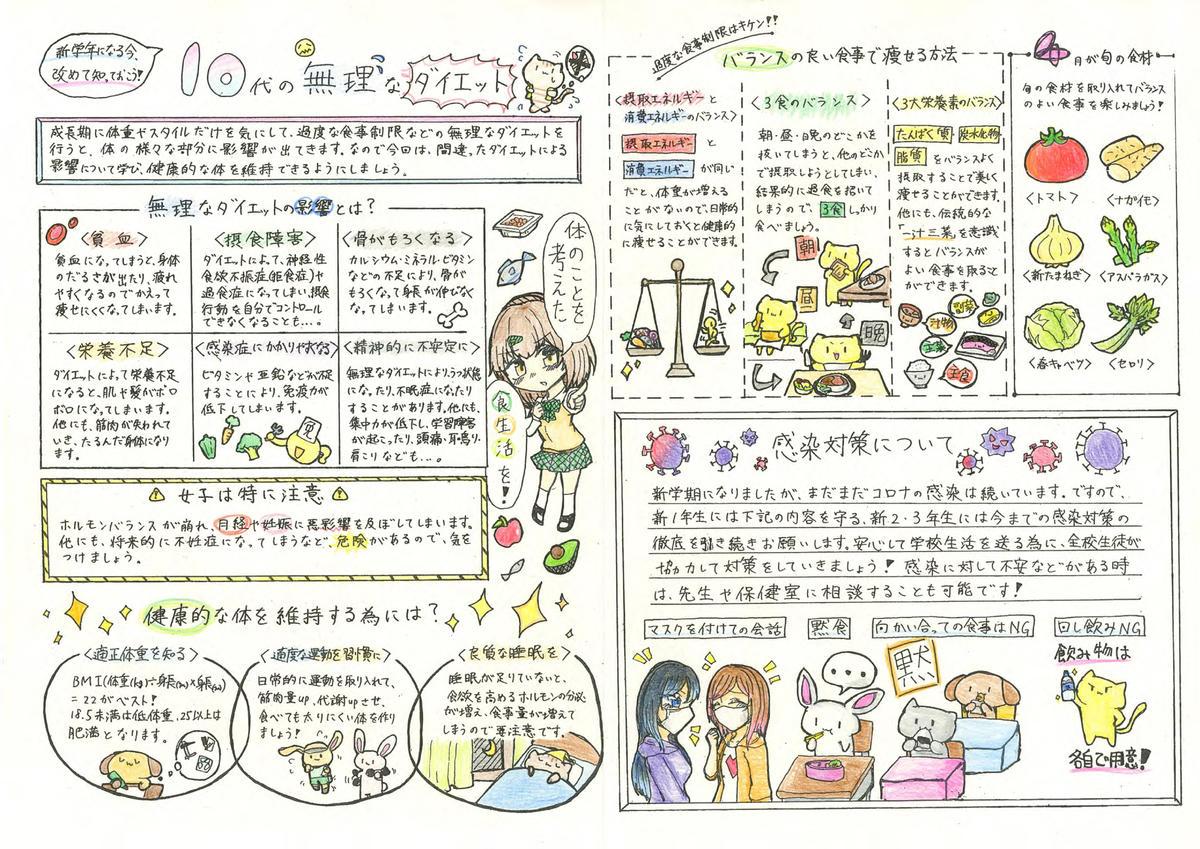 新学年になる今、
改めて知っておこう!
10代の無理なダイエット
成長期に体重やスタイルだけを気にして、過度な食事制限などの無理なダイエットを
行うと、体の様々な部分に影響が出てきます。なので今回は、間違ったダイエットによる
影響について学び、健康的な体を維持できるようにしましょう。
無理なダイエットの影響とは?
〈貧血〉
貧血になってしまうと、身体
のだるさが出たり、疲れ
やすくなるのでかえって
痩せにくくなってしまいます。
〈摂食障害〉
ダイエットによって、神経性
食欲不振症(拒食症)や
過食症になってしまい、摂食
行動を自分でコントロール
できなくなることも...。
〈骨がもろくなる〉
カルシウム・ミネラル・ビタミン
などの不足により、骨が
もろくなって身長が伸びなく
なってしまいます。
〈栄養不足〉
ダイエットによって栄養不足
になると、肌や髪がボロ
ボロになってしまいます。
他にも、筋肉が失われて
いき、たるんだ身体になり
ます。
〈感染症にかかりやすくなる〉
ビタミンや亜鉛などが不足
することにより、免疫力が
低下してしまいます。
免
〈精神的に不安定に〉
無理なダイエットにより、うつ状態
になったり、不眠症になったり
することがあります。他にも、
集中力が低下し、学習障害
が起こったり、頭痛・耳鳴り・
肩こりなども...。
体のことを
考えた
食生活を!
女子は特に注意
ホルモンバランスが崩れ、月経や妊娠に悪影響を及ぼしてしまいます。
他にも、将来的に不妊症になってしまうなど、危険があるので、気を
つけましょう。
健康的な体を維持する為には?
〈適正体重を知る〉
BMI(体重(kg)÷身長(m)×身長(m))
=22がベスト!
18.5未満は低体重、25以上は
肥満となります。
〈適度な運動を習慣に〉
日常的に運動を取り入れて、
筋肉量up、代謝upさせ、
食べても太りにくい体を作り
ましょう!
〈良質な睡眠を〉
睡眠が足りていないと、
食欲を高めるホルモンの分泌
が増え、食事量が増えて
しまうので要注意です。
過度な食事制限はキケン!!
バランスの良い食事で痩せる方法
〈摂取エネルギーと
消費エネルギーのバランス〉
摂取エネルギーと
消費エネルギーが同じ
だと、体重が増える
ことがないので、日常的
に気にしておくと健康的
に痩せることができます。
〈3食のバランス〉
朝・昼・晩のどこかを
抜いてしまうと、他のどこか
で摂取しようとしてしまい、
結果的に過食を招いて
しまうので、3食しっかり
食べましょう。
朝
昼
晩
〈3大栄養素のバランス〉
たんぱく質 炭水化物
脂質をバランスよく
摂取することで美しく
痩せることができます。
他にも、伝統的な
「一汁三菜」を意識
するとバランスが
よい食事を取ること
ができます。
副菜
汁物
主菜
主食
月が旬の食材
旬の食材を取り入れてバランス
のよい食事を楽しみましょう!
〈トマト〉
〈ナガイモ〉
〈新たまねぎ〉
〈アスパラガス〉
〈春キャベツ〉
〈セロリ〉
感染対策について
新学期になりましたが、まだまだコロナの感染は続いています。ですので、
新1年生には下記の内容を守る、新2・3年生には今までの感染対策の
徹底を引き続きお願いします。安心して学校生活を送る為に、全校生徒が
協力して対策をしていきましょう! 感染に対して不安などがある時
は、先生や保健室に相談することも可能です!
マスクを付けての会話
黙食
向かい合っての食事はNG
回し飲みNG
黙
飲み物は
各自で用意!